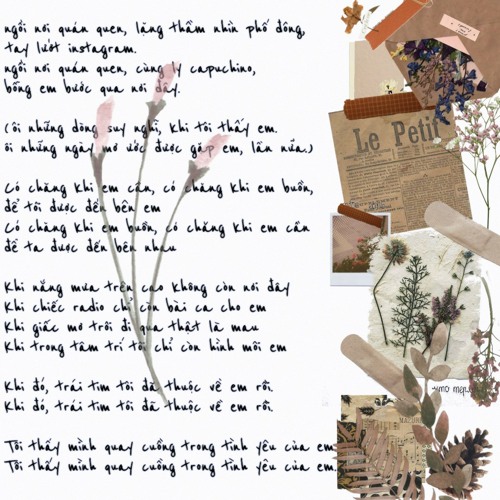 ngồi nơi quán quen, lặng thầm nhìn phố đông,
tay lướt instagram.
ngồi nơi quán quen, cùng ly capuchino,
bỗng em bước qua nơi đây.
(ôi những dòng suy nghĩ, khi tôi thấy em.
ôi những ngày mơ ước được gặp em, lần nữa.)
Có chăng khi em cần, có chăng khi em buồn,
để tôi được đến bên em
Có chăng khi em buồn, có chăng khi em cần
để ta được đến bên nhau
Khi nắng mưa trên cao không còn nơi đây
Khi chiếc radio chỉ còn bài ca cho em
Khi giấc mơ trôi đi qua thật là mau
Khi trong tâm trí tôi chỉ còn hình môi em
Khi đó, trái tim tôi đã thuộc về em rồi.
Khi đó, trái tim tôi đã thuộc về em rồi.
Tôi thấy mình quay cuồng trong tình yêu của em.
Tôi thấy mình quay cuồng trong tình yêu của em.
Le Petit